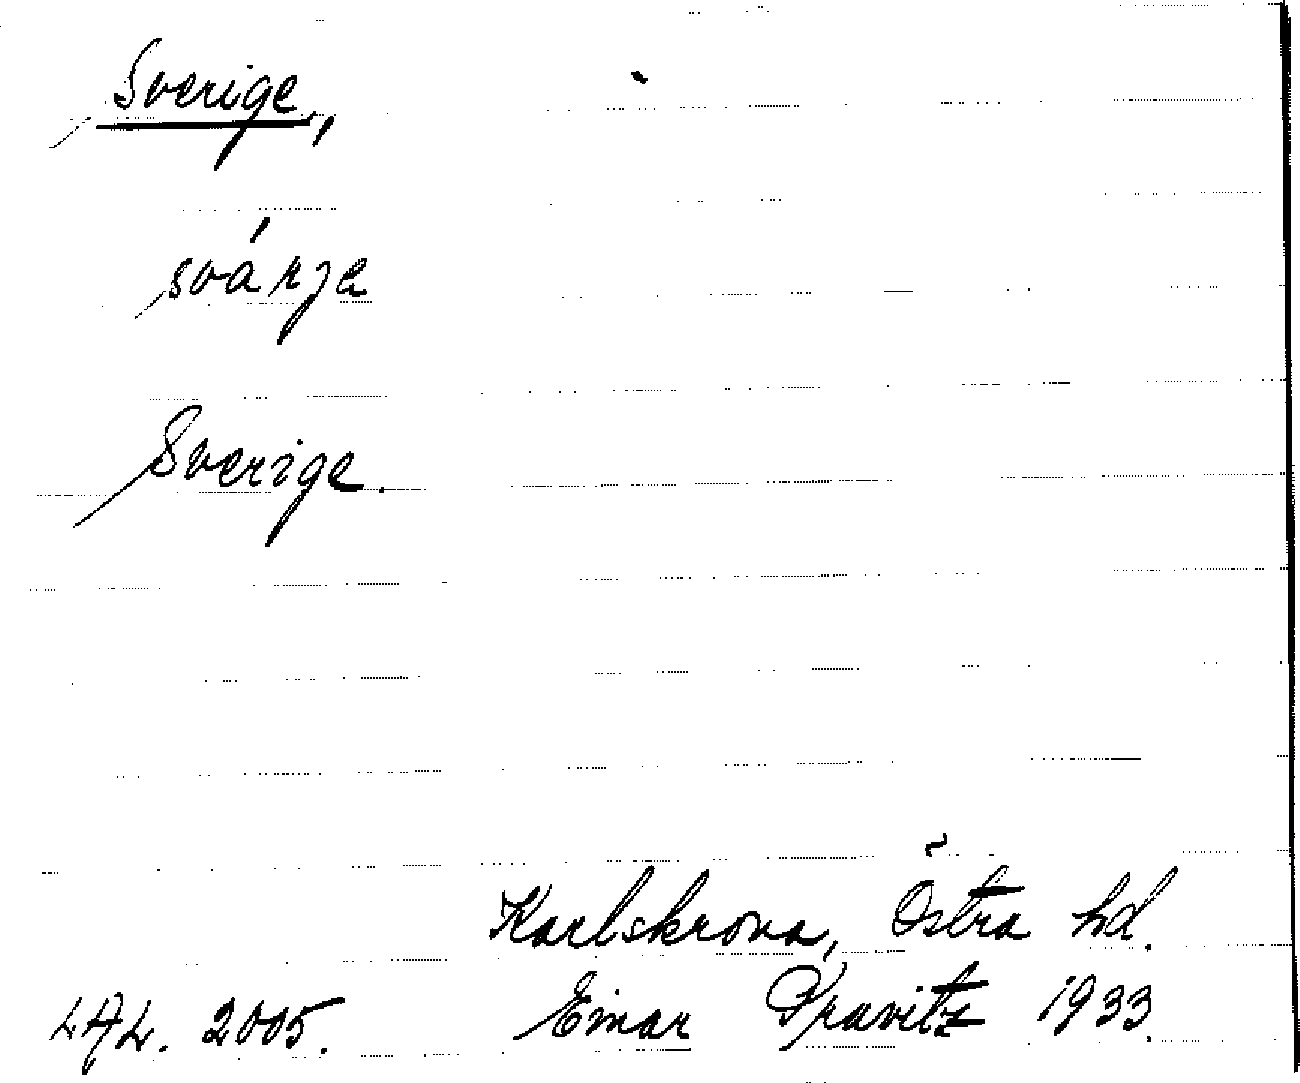 Sverige,
svárje
Sverige.
Karlskrona, Östra hd.
LAL. 2005. Einar Pravitz 1933.